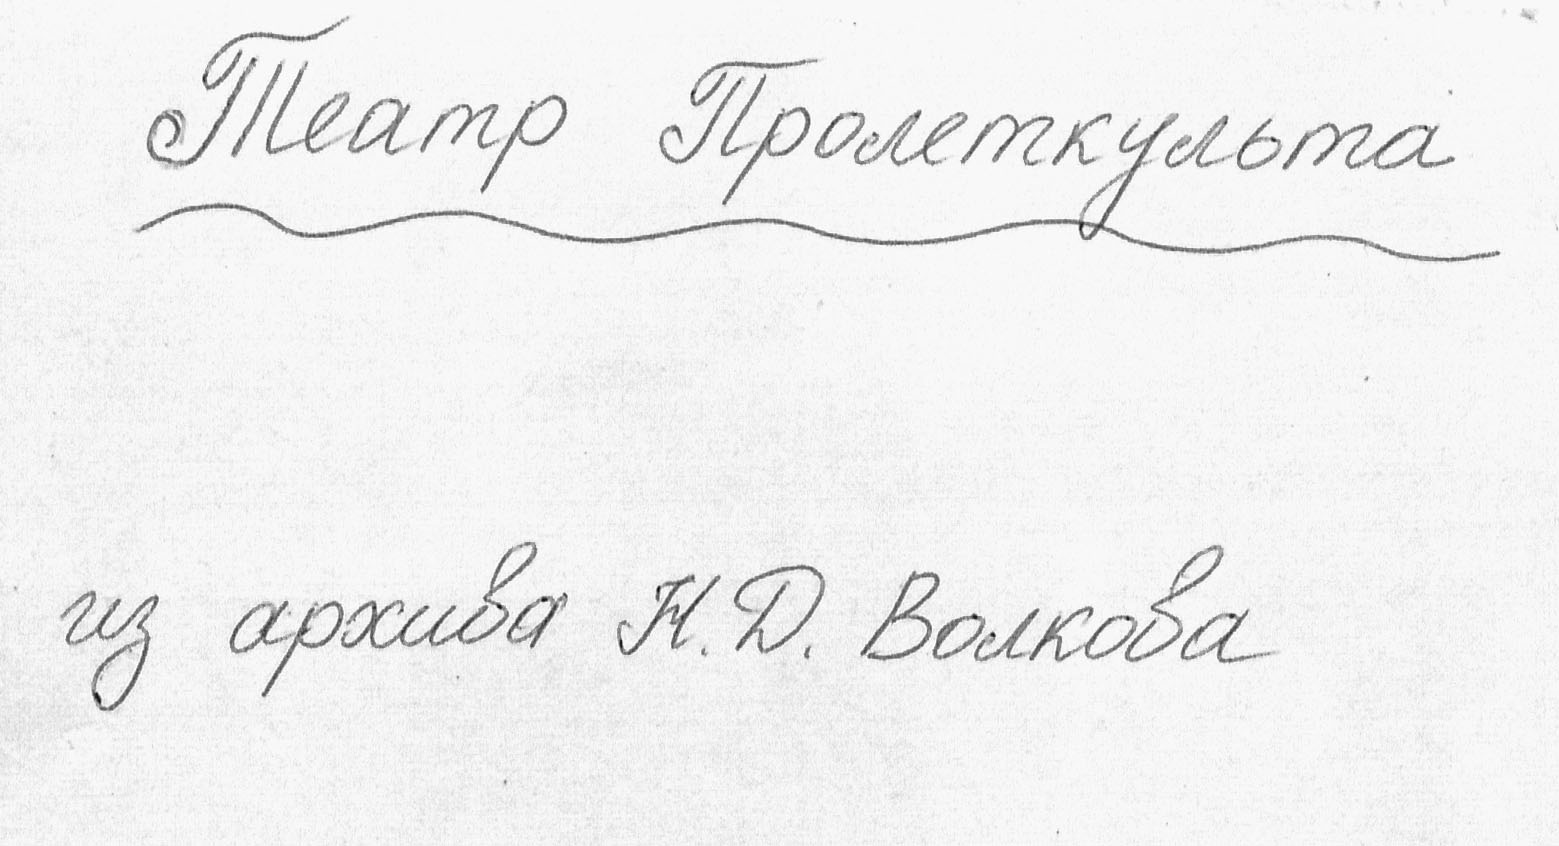 Театр Пролеткульта
из архива Н.Д. Волкова